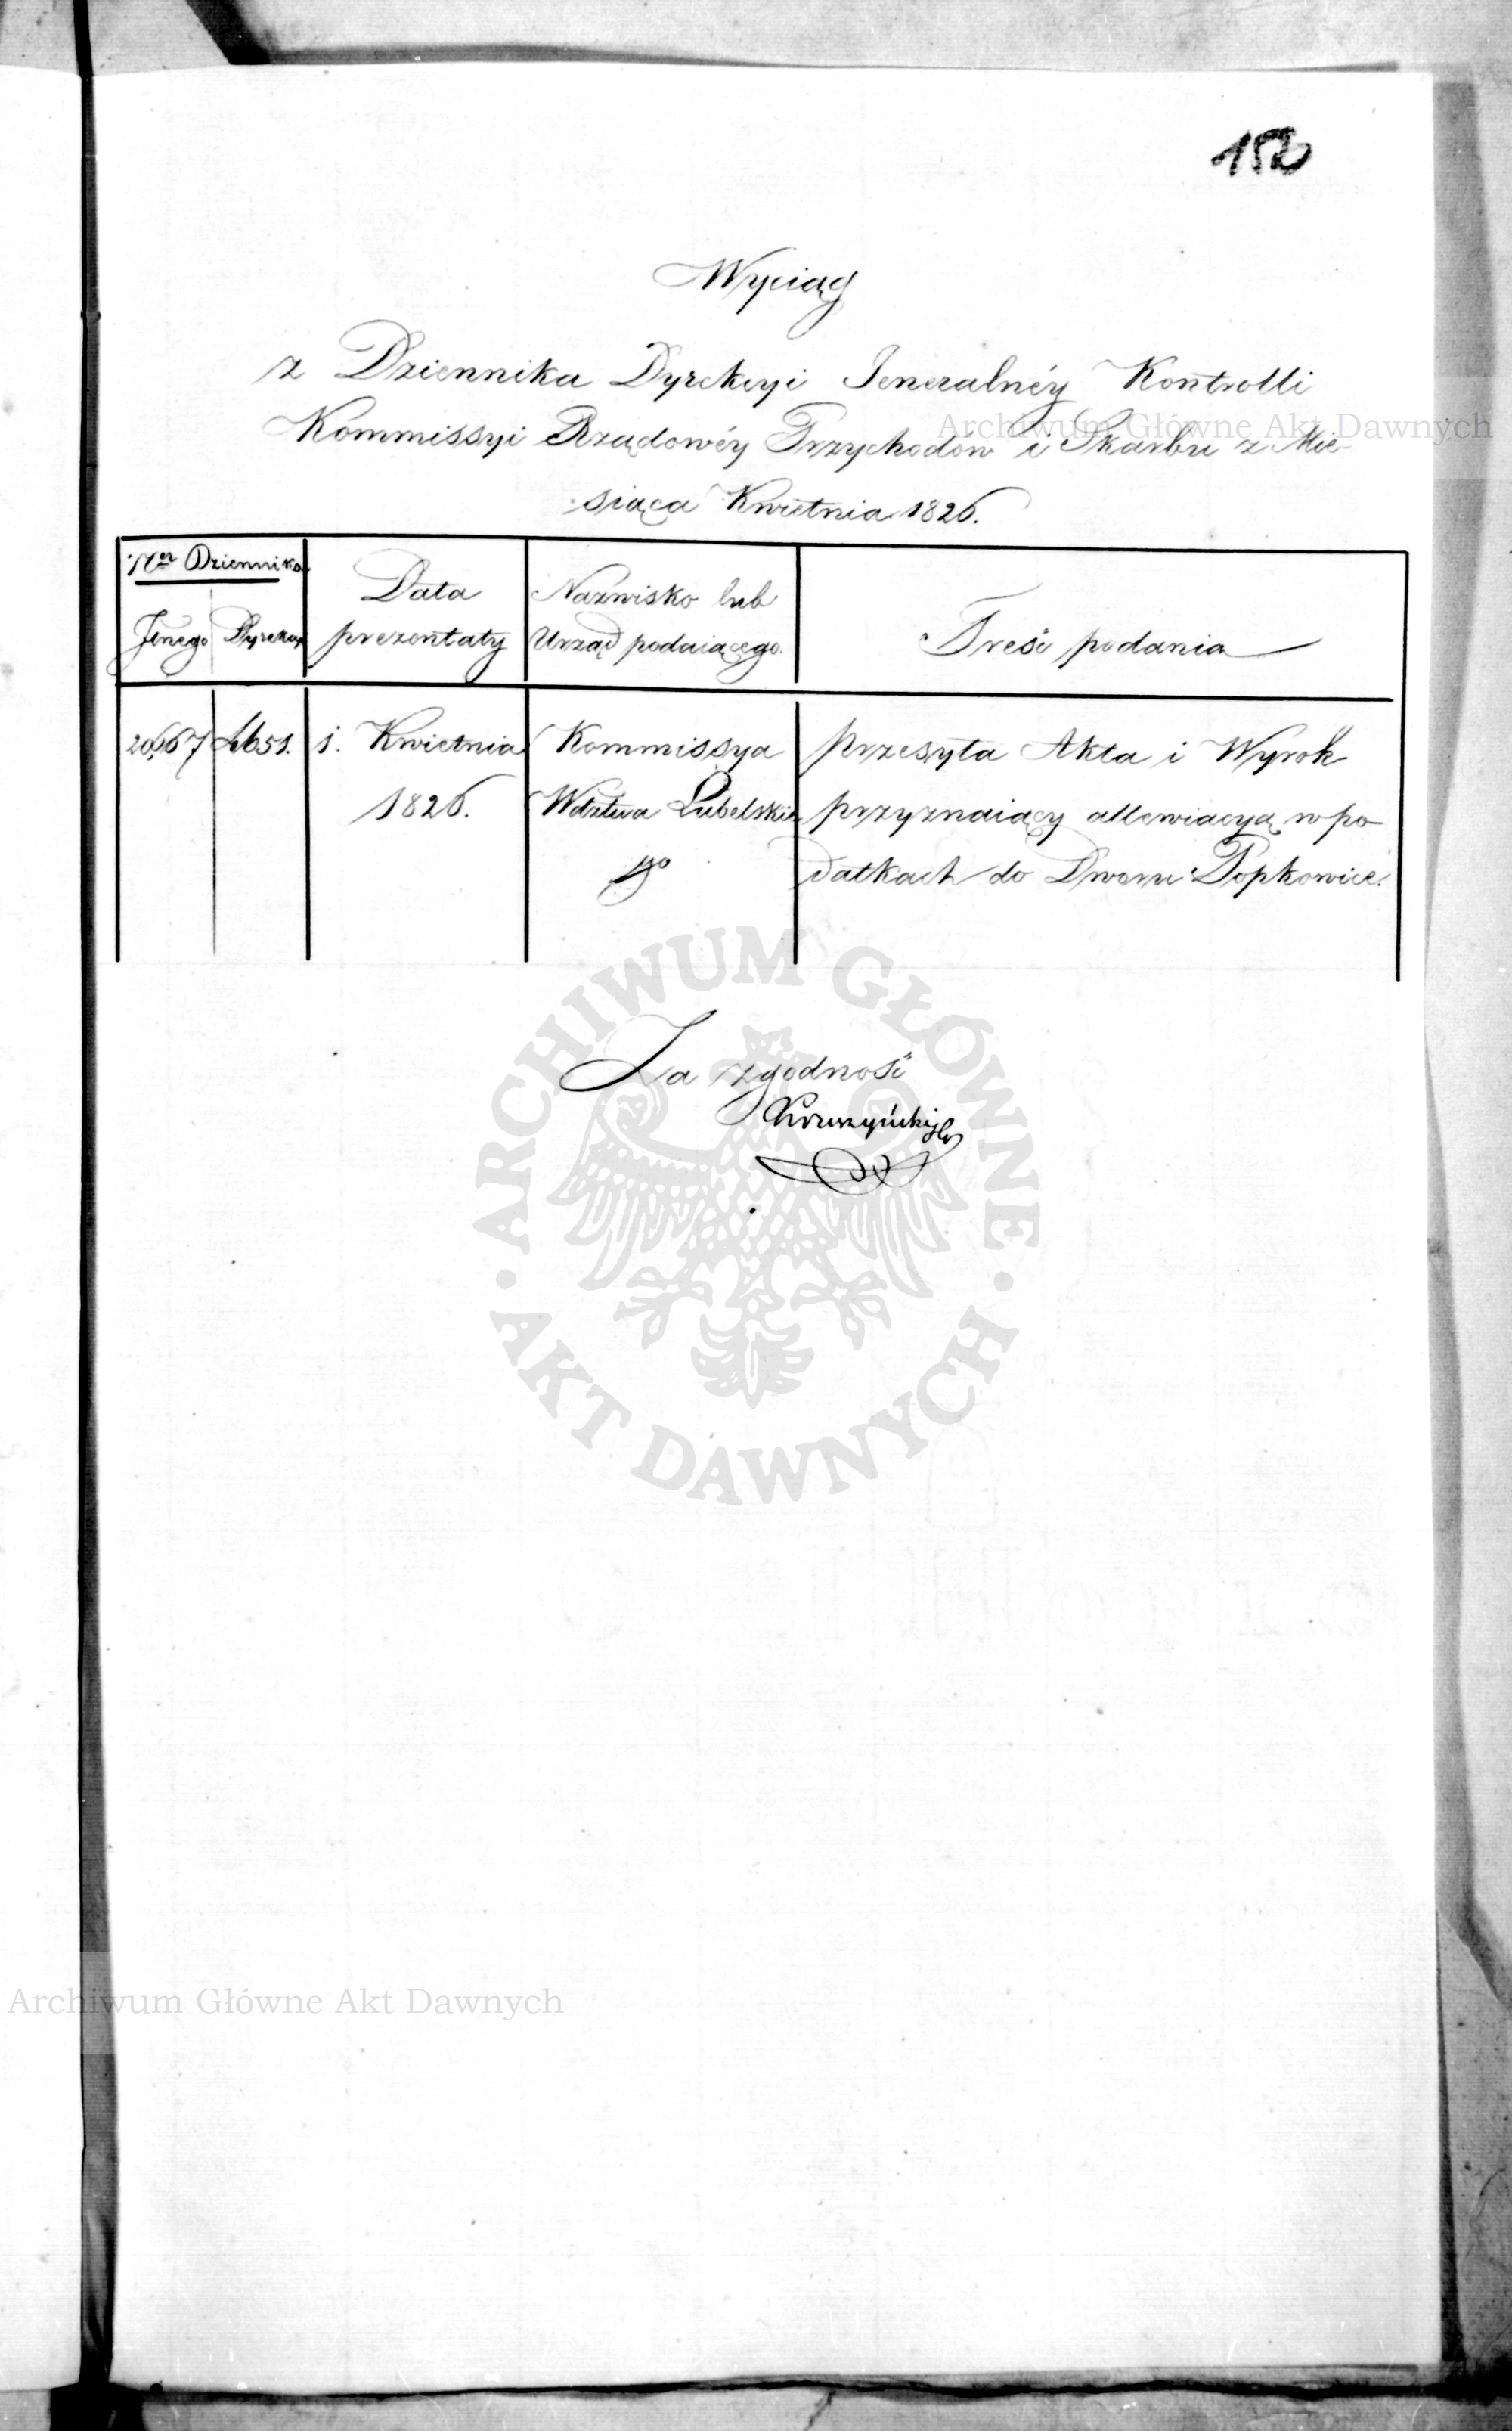 152
Wyciąg
z Dziennika Dyrekcyi Jeneralnéy Kontrolli
Kommissyi Rządowéy Przychodów i Skarbu z Mie-
siąca Kwietnia 1826.
Ner Dziennika
Jlnego Dyrekcyi
Data
prezentaty
Nazwisko lub
Urząd podaiącego.
Treść podania
20,667
1. Kwietnia
1826.
Kommissya
Wdztwa Lubelskie
go
przesyła Akta i Wyrok
przyznaiący allewiacyą w po-
datkach do Dworu Popkowice.
Za zgodność
Archiwum Główne Akt Dawnych
ARCHIWUM GŁÓWNE · AKT DAWNYCH ·
Archiwum Główne Akt Dawnych